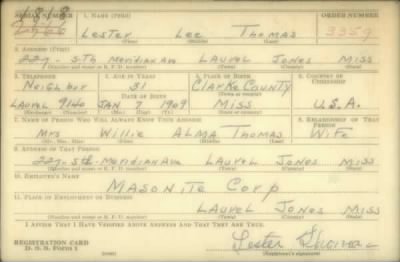 SERIAL NUMBER 1. NAME (Print) ORDER NUMBER
1818
Lester Lee Thomas 3359
(First) (Middle) (Last)
2. ADDRESS (Print)
227 - 5th Meridian Ave Laurel Jones Miss
(Number and street or R. F. D. number) (Town) (County) (State)
3. TELEPHONE 4. AGE IN YEARS 5. PLACE OF BIRTH 6. COUNTRY OF CITIZENSHIP
Neighbor 31 Clarke County
DATE OF BIRTH (Town or county)
Laurel 9140 Jan 7 1909 Miss U.S.A.
(Exchange) (Number) (Mo.) (Day) (Yr.) (State or country)
7. NAME OF PERSON WHO WILL ALWAYS KNOW YOUR ADDRESS 8. RELATIONSHIP OF THAT PERSON
Mrs Willie Alma Thomas Wife
(Mr., Mrs., Miss) (First) (Middle) (Last)
9. ADDRESS OF THAT PERSON
227-5th-Meridian Ave Laurel Jones Miss
(Number and street or R. F. D. number) (Town) (County) (State)
10. EMPLOYER'S NAME
Masonite Corp
11. PLACE OF EMPLOYMENT OR BUSINESS
Laurel Jones Miss
(Number and street or R. F. D. number) (Town) (County) (State)
I AFFIRM THAT I HAVE VERIFIED ABOVE ANSWERS AND THAT THEY ARE TRUE.
REGISTRATION CARD
D. S. S. Form 1 (over) Lester Thomas
(Registrant's signature)